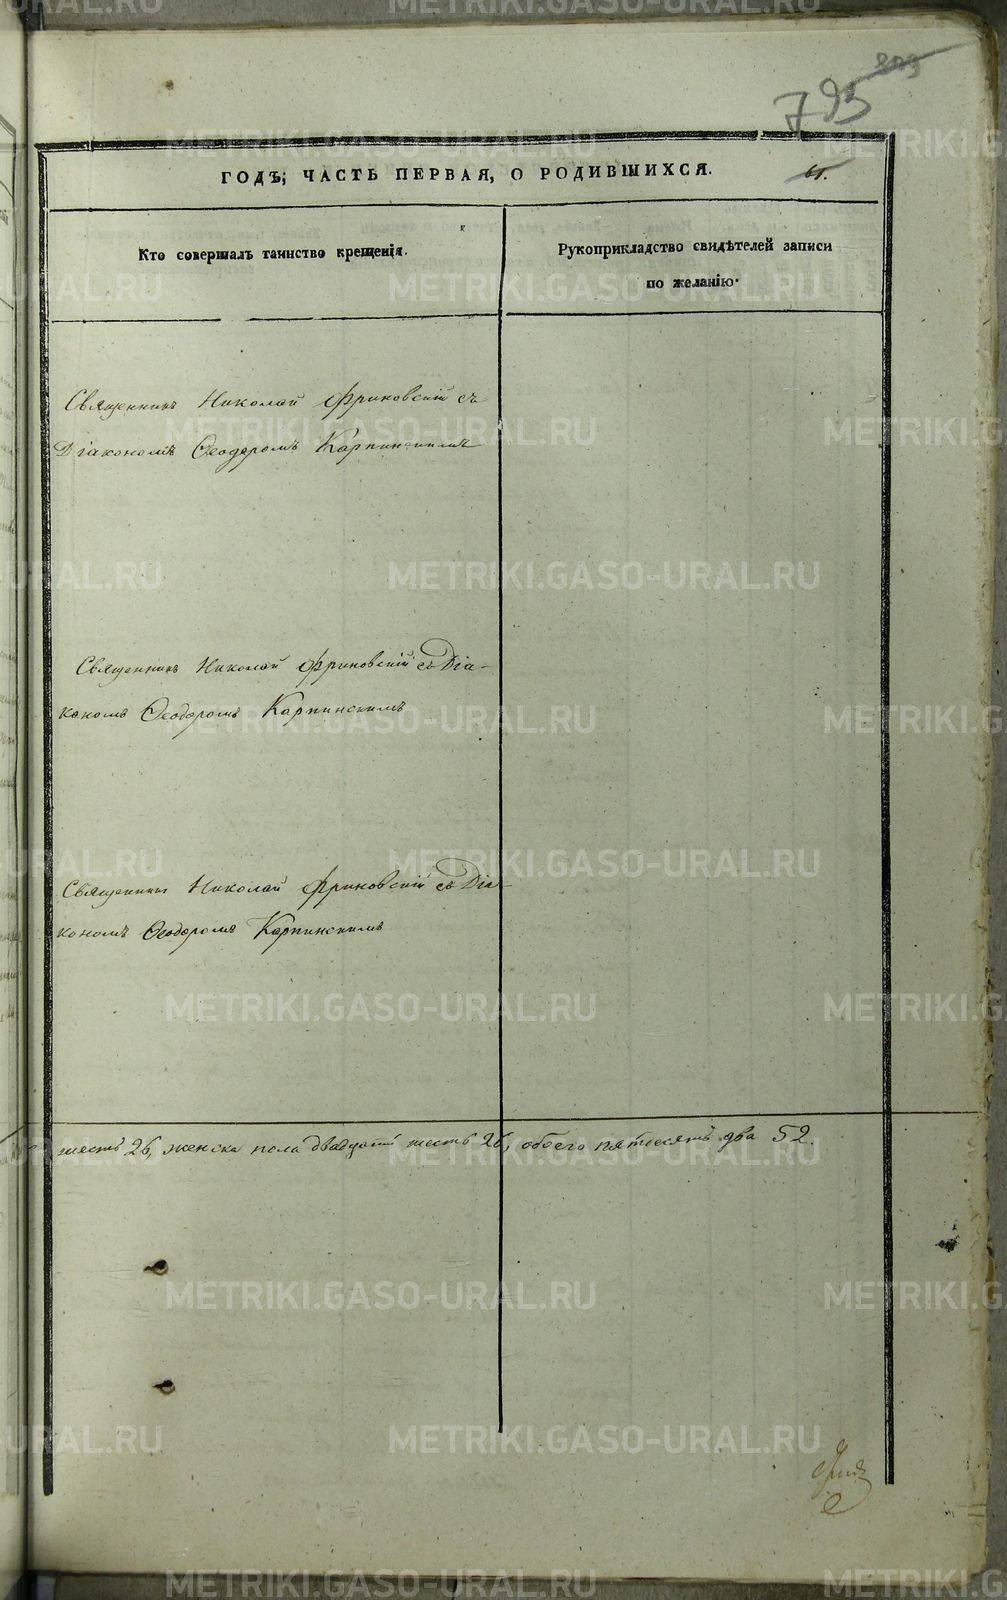 795
ГОДЪ; ЧАСТЬ ПЕРВАЯ, О РОДИВШИХСЯ.
Кто совершалъ таинство крещенія.
Рукоприкладство свидѣтелей записи
по желанію.
Священникъ Николай Фриновскій съ
Діакономъ Ѳеодоромъ Карпинскимъ
Священникъ Николай Фриновскій съ Діа-
кономъ Ѳеодоромъ Карпинскимъ
Священникъ Николай Фриновскій съ Діа-
кономъ Ѳеодоромъ Карпинскимъ
шесть 26, женска пола двадцать шесть 26, обоего пятдесятъ два 52.
METRIKI.GASO-URAL.RU